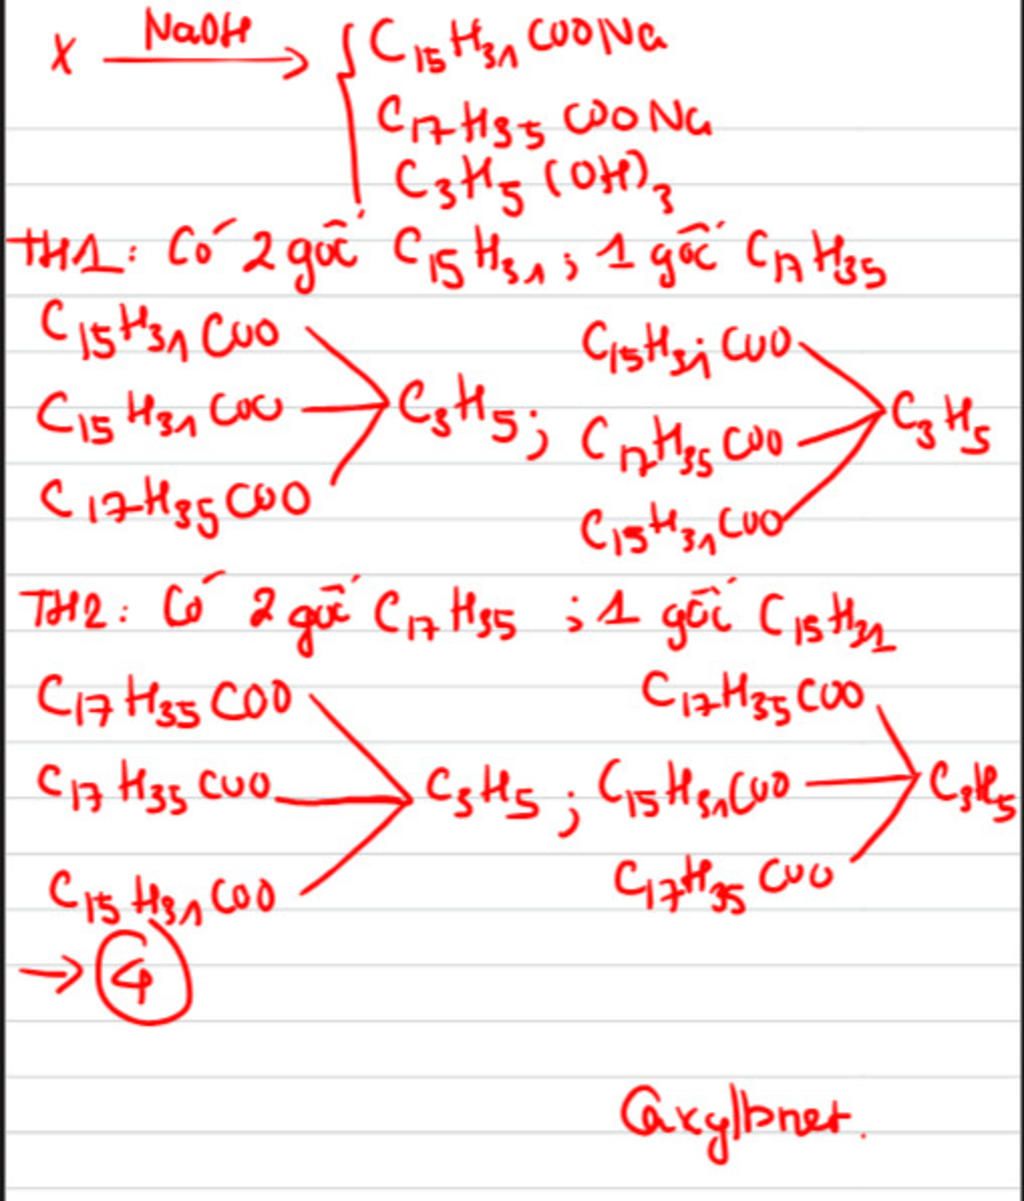 X NaOH → { C15H31COONa
C17H35COONa
C3H5(OH)3
TH1: Có 2 gốc C15H31; 1 gốc C17H35
C15H31COO C15H31COO
C15H31COO C3H5; C17H35COO C3H5
C17H35COO C15H31COO
TH2: Có 2 gốc C17H35; 1 gốc C15H31
C17H35COO C17H35COO
C17H35COO C3H5; C15H31COO C3H5
C15H31COO C17H35COO
→ 4